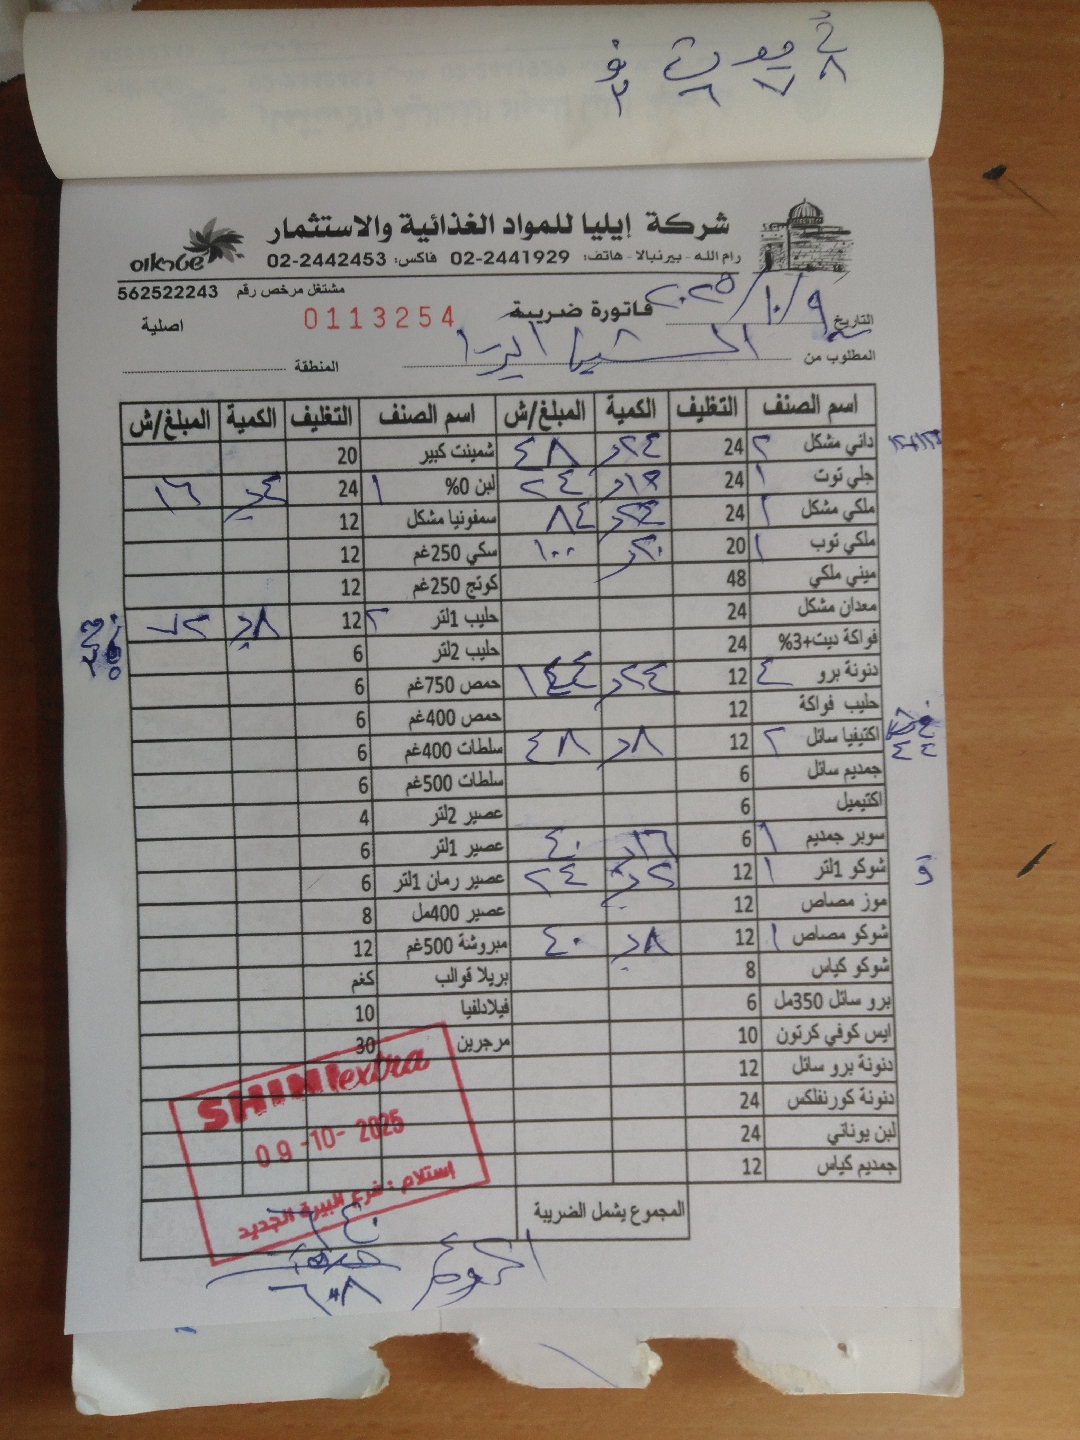 شركة إيليا للمواد الغذائية والاستثمار
שטראוס
رام الله - بيرنبالا - هاتف: 02-2441929 فاكس: 02-2442453
مشتغل مرخص رقم 562522243
التاريخ ٢٠٢٥/١٠/٩ فاتورة ضريبة 0113254 اصلية
المطلوب من المنطقة
اسم الصنف التغليف الكمية المبلغ/ش اسم الصنف التغليف الكمية المبلغ/ش
داني مشكل ٢ 24 ٢٤ ٤٨ شمينت كبير 20
جلي توت ١ 24 ٢٤ لبن 0% ١ 24 ١٦
ملكي مشكل ٢ 24 ٢٤ ٨٤ سمفونيا مشكل 12
ملكي توب ١ 20 ٢٠ ١٠٠ سكي 250غم 12
ميني ملكي 48 كوتج 250غم 12
معدان مشكل 24 حليب 1لتر ٢ 12 ٨ ٧٢
فواكة ديت+3% 24 حليب 2لتر 6
دنونة برو ٤ 12 ٢٤ ١٤٤ حمص 750غم 6
حليب فواكة 12 حمص 400غم 6
اكتيفيا سائل ٢ 12 ٨ ٤٨ سلطات 400غم 6
جمديم سائل 6 سلطات 500غم 6
اكتيميل 6 عصير 2لتر 4
سوبر جمديم ١ 6 ١٦ ٤٠ عصير 1لتر 6
شوكو 1لتر ١ 12 ٢٤ عصير رمان 1لتر 6
موز مصاص 12 عصير 400مل 8
شوكو مصاص ١ 12 ٨ ٤٠ مبروشة 500غم 12
شوكو كياس 8 بريلا قوالب كغم
برو سائل 350مل 6 فيلادلفيا 10
ايس كوفي كرتون 10 مرجرين 30
دنونة برو سائل 12
دنونة كورنفلكس 24
لبن يوناني 24
جمديم كياس 12
المجموع يشمل الضريبة
SHINI extra
09-10-2025
إستلام : فرع البيرة الجديد
٦٠٨